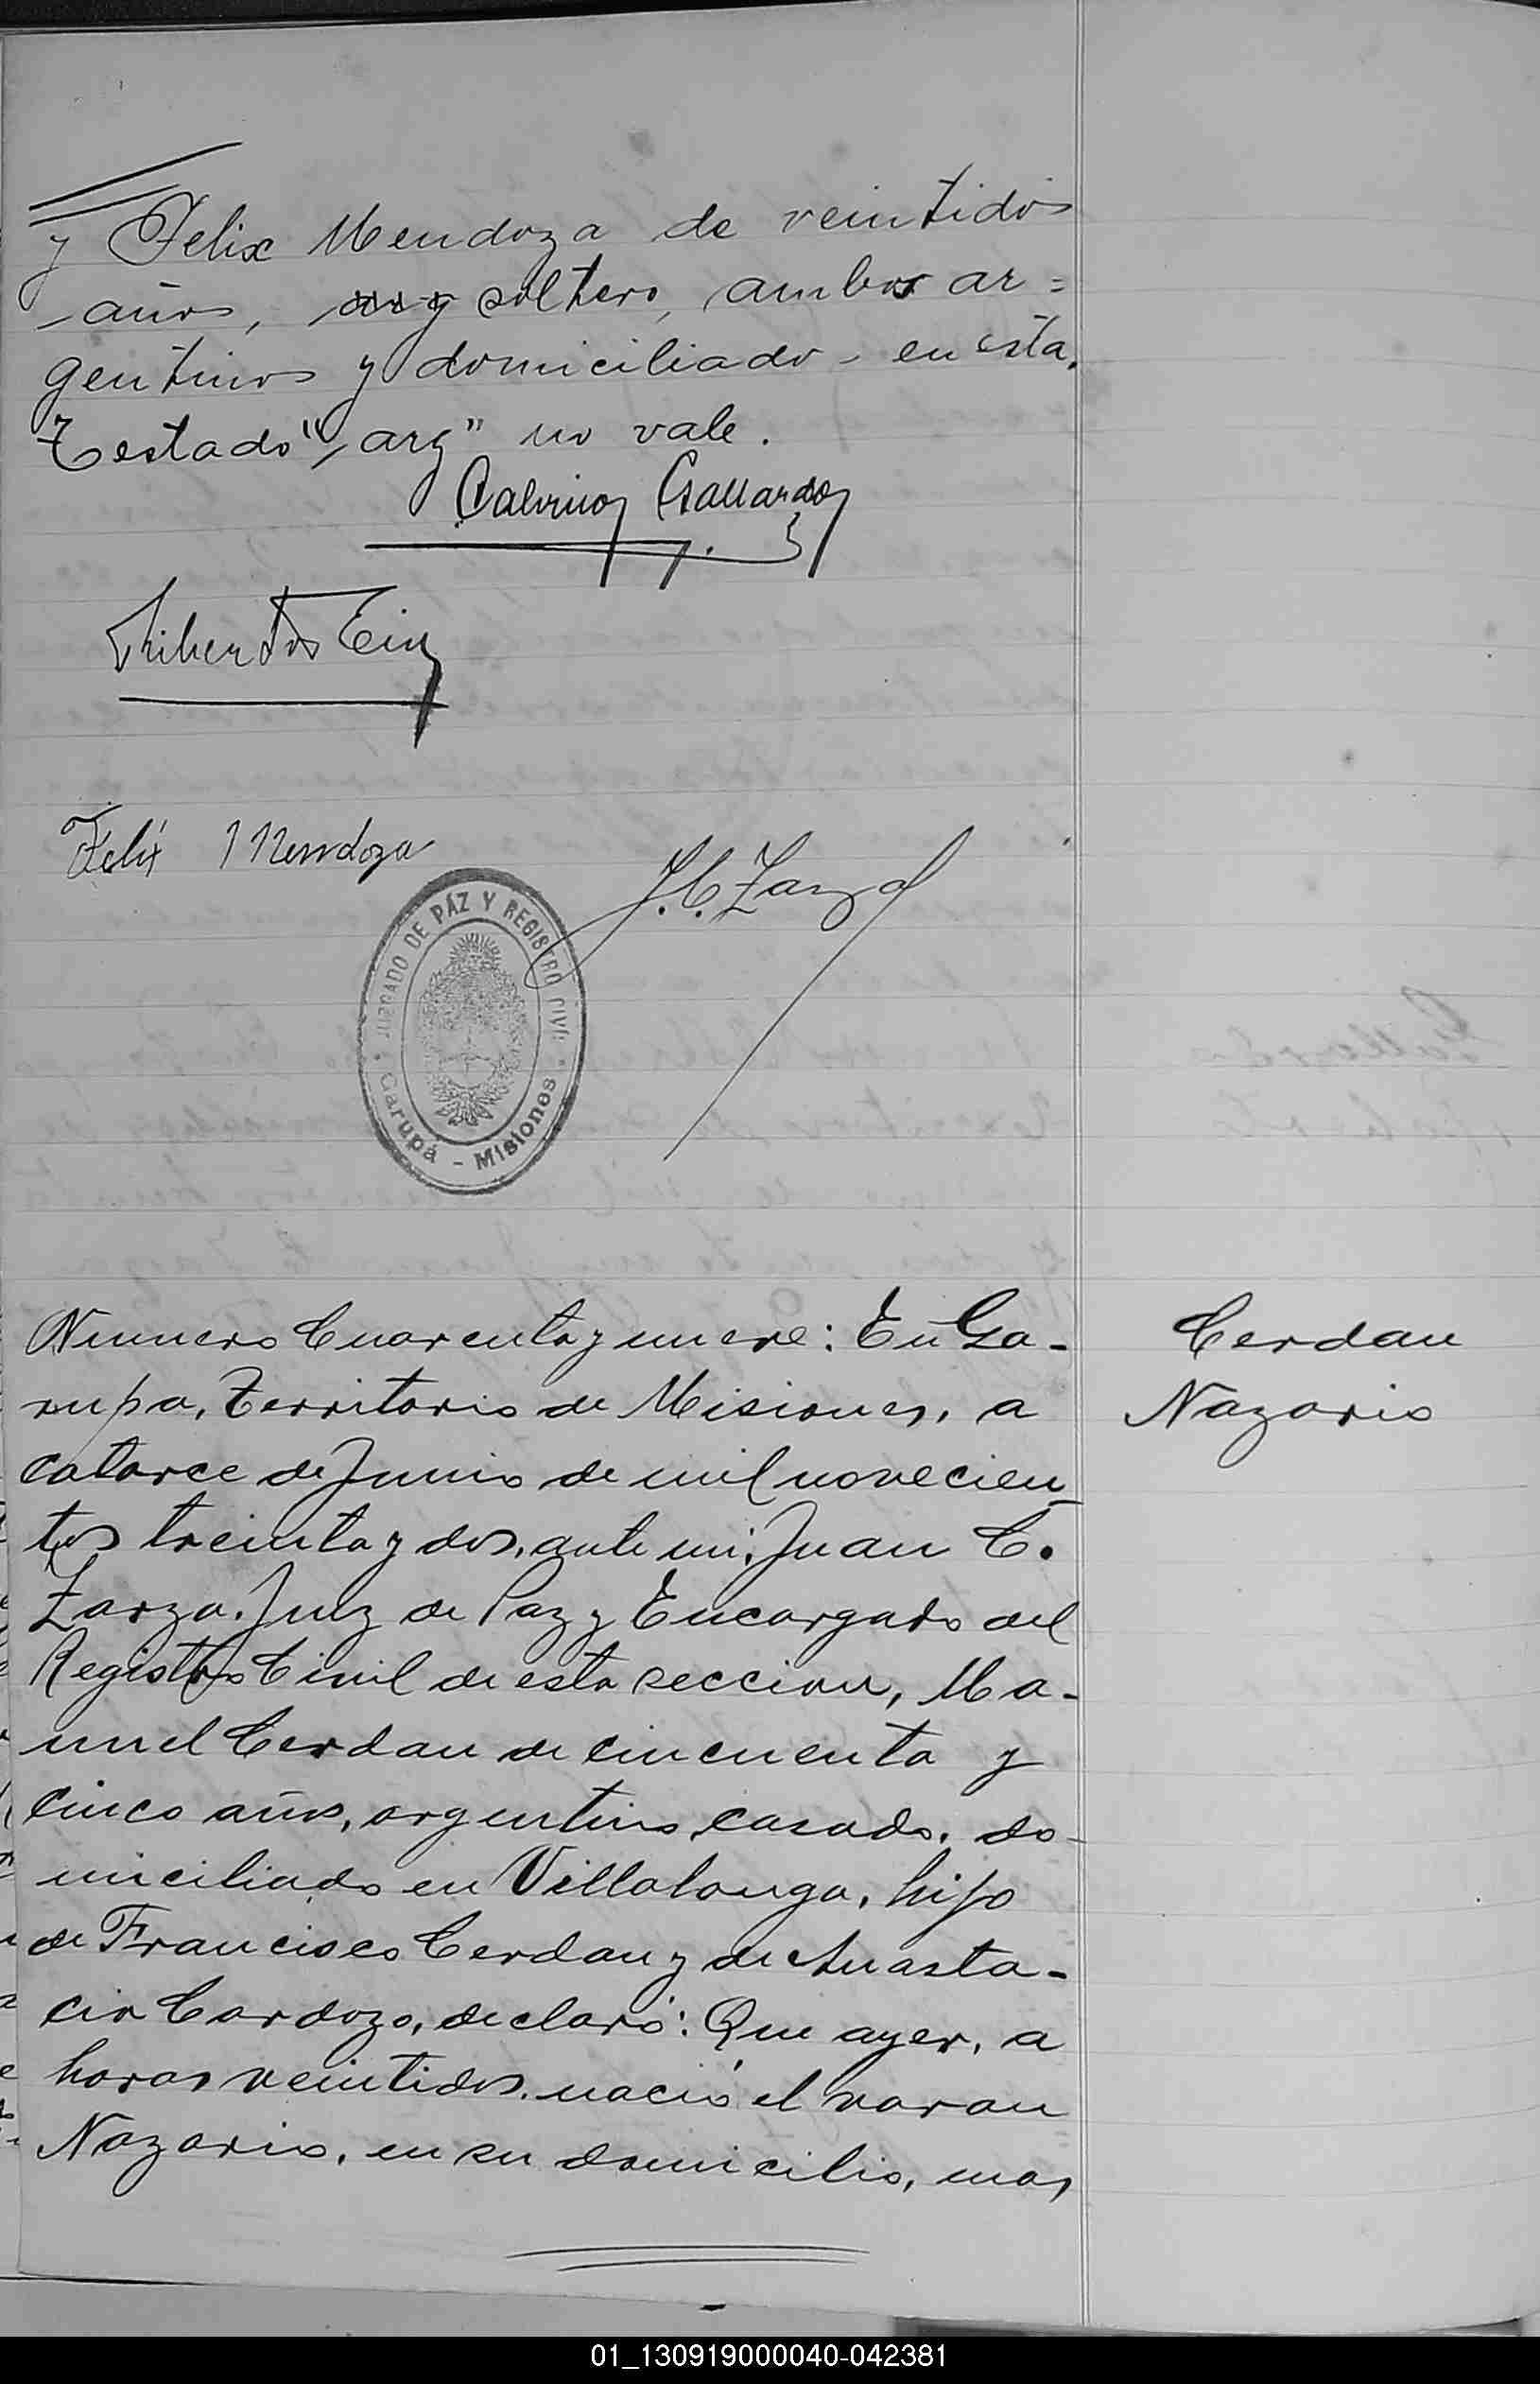 y Felix Mendoza de veintidos
años, arg soltero, ambos ar=
gentinos y domiciliado- en esta.
Testado ", arg" no vale.
Gallardo
Felix Mendoza
J. C. Zarza
JUZGADO DE PAZ Y REGISTRO CIVIL
Garupá - Misiones
Numero Cuarenta y nueve: En Ga-
rupa, Territorio de Misiones, a
catorce de Junio de mil novecien
tos treinta y dos, ante mi, Juan C.
Zarza. Juez de Paz y Encargado del
Registro Civil de esta seccion, Ma-
nuel Cerdan de cincuenta y
cinco años, argentino, casado, do-
miciliado en Villalonga, hijo
de Francisco Cerdan y de Anasta-
cia Cardozo, declaró: Que ayer, a
horas veintidos, nació el varon
Nazario, en su domicilio, mas
Cerdan
Nazario
01_130919000040-042381